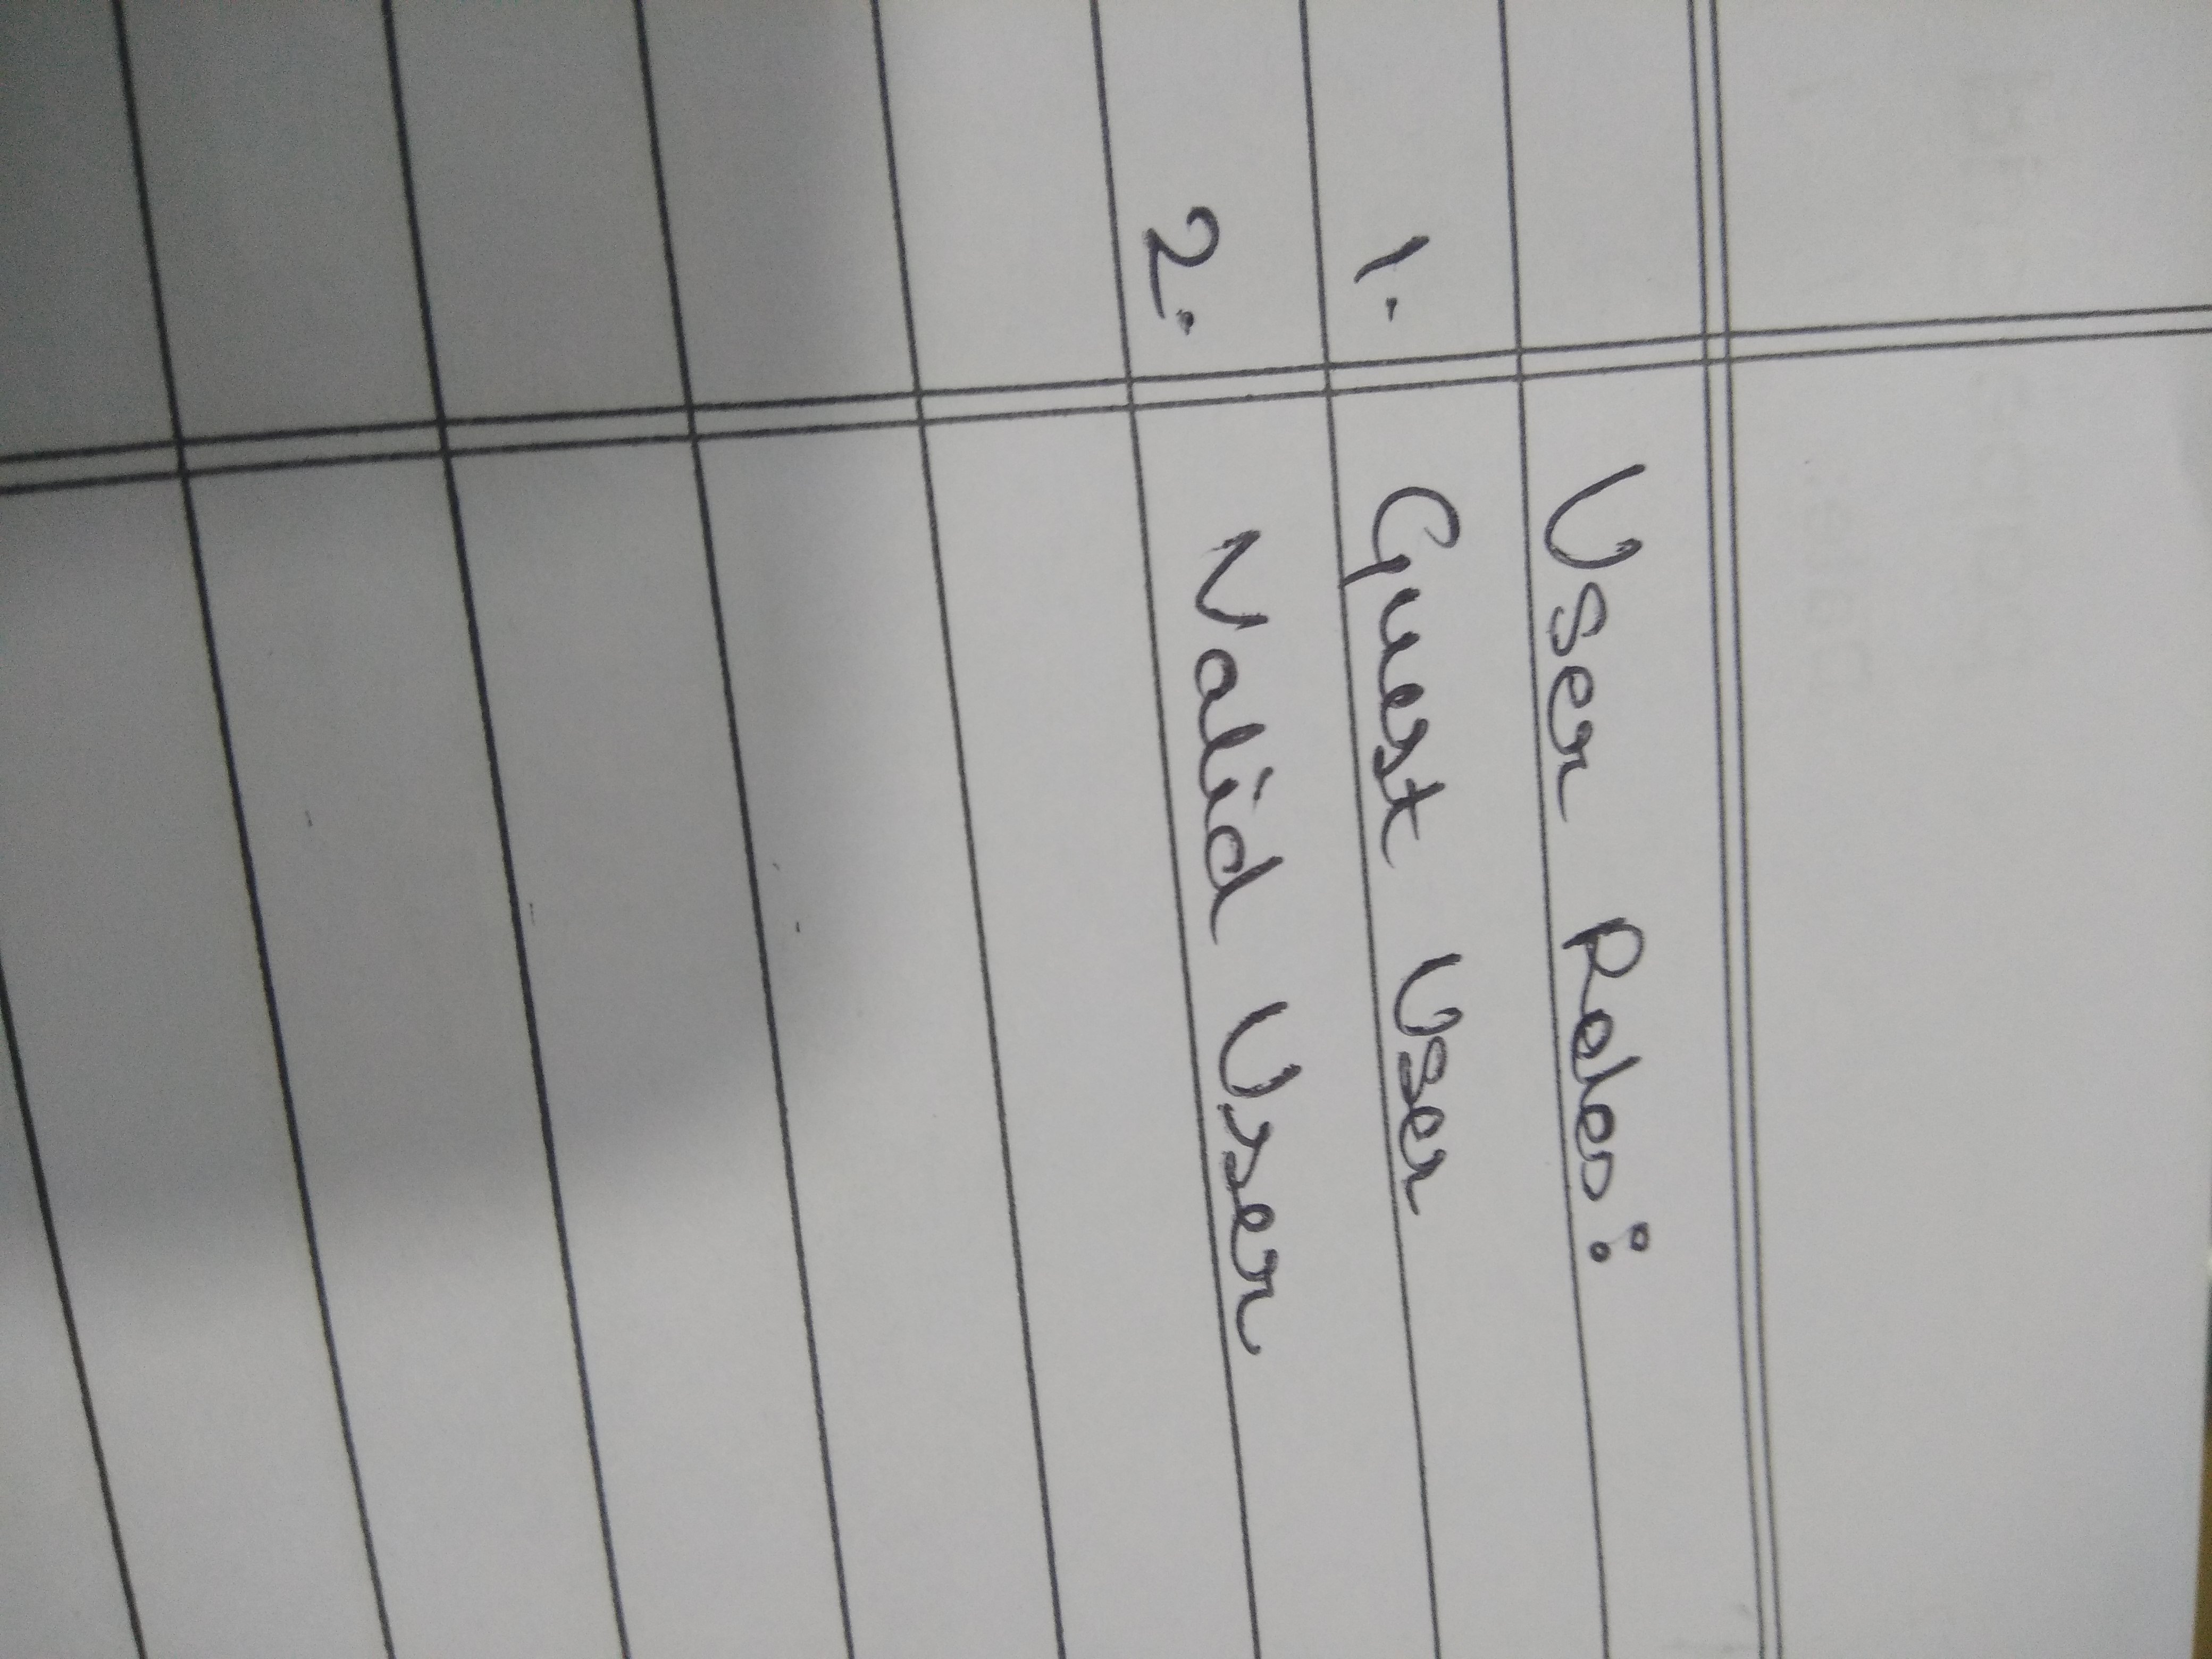 User Roles:
1. Guest User
2. Valid User